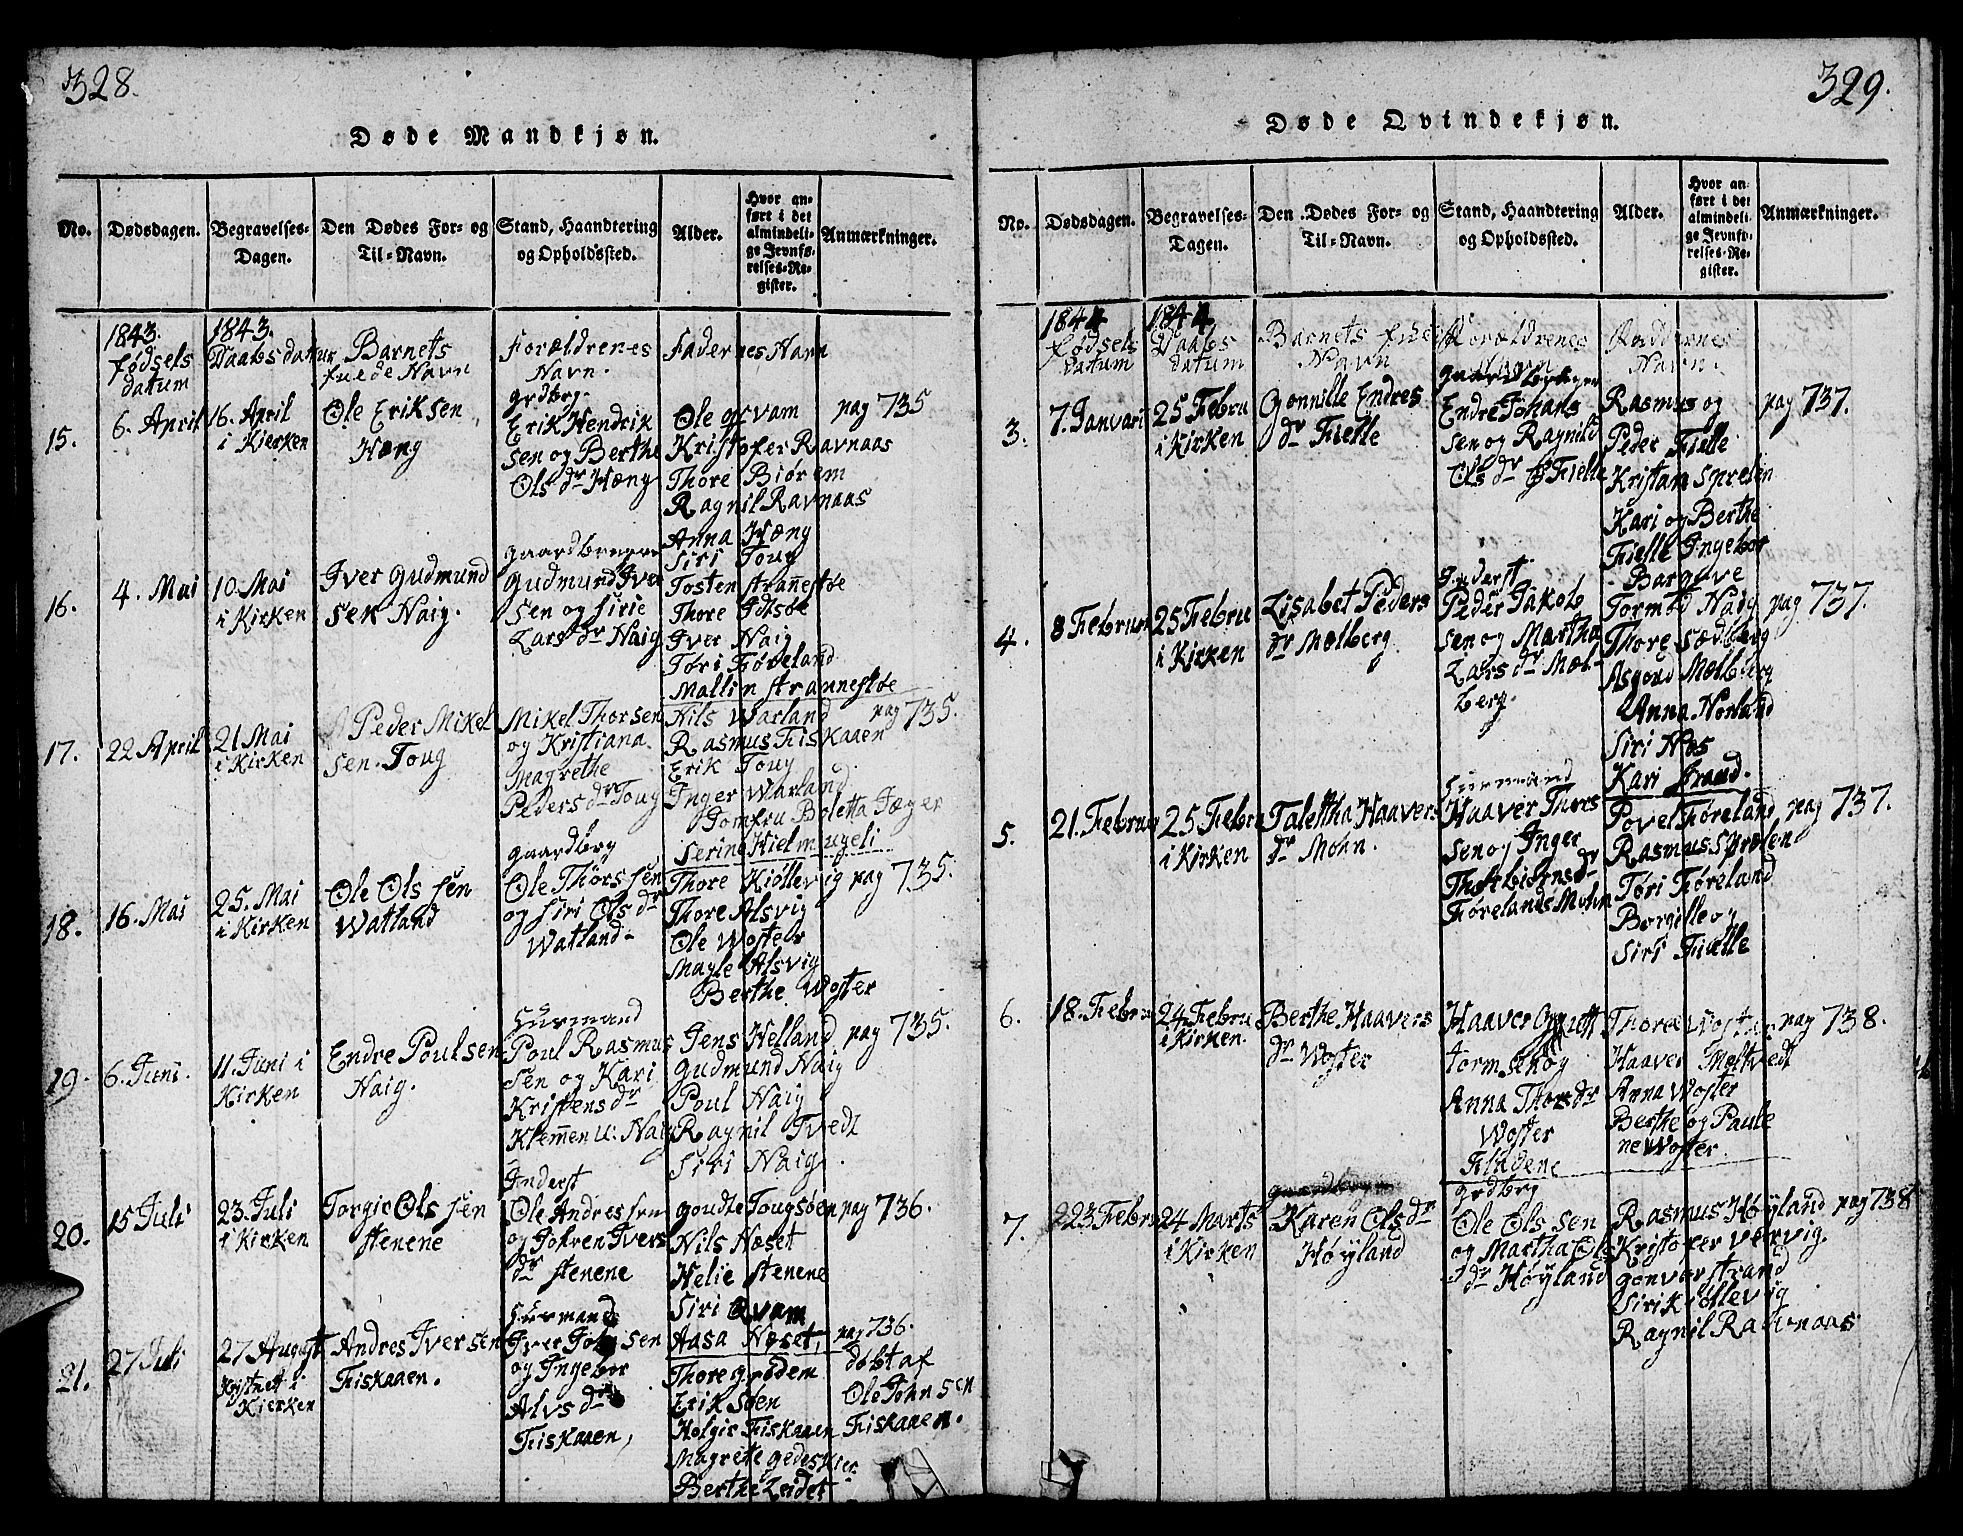 328.
Døde Mandkjøn.
No.
Dødsdagen.
Begravelses-
Dagen.
Den Dødes For- og
Til-Navn.
Stand, Haandtering
og Opholdssted.
Alder.
Hvor an-
ført i det
almindeli-
ge Jevnfø-
relses-Re-
gister.
Anmærkninger.
1843.
fødsels
datum
1843.
Daabs datum
Barnets
fulde Navn
Forældrenes
Navn.
Fadernes Navn
15.
6. April
16. April
i Kierken
Ole Eriksen
Hæng
grdbrg.
Erik Hendrik
sen og Berthe
Ols dr Hæng
Ole qvam
Kristofer Ravnaas
Thore Biorem
Ragnil Ravnaas
Anna Hæng
pag 735
16.
4. Mai
10. Mai
i Kirken
Iver Gudmund
sen Naig.
Gudmund Iver
sen og Sirie
Lars dr Naig
Siri Toug
Tosten Stranestøe
Thore
Iver Naig
Tøri Føreland
Mallin Strannestøe
17.
22 April
21 Mai
i Kirken
Peder Mikel
sen. Toug
Mikel Thorsen
og Kristiana
Magrethe
Peders dr Toug
Nils Warland
Rasmus Fiskaaen
Erik Toug
Inger Warland
Jomfru Boletta Jæger
Serina Hielmugeli
pag 735.
18.
16. Mai
25. Mai
i Kirken
Ole Ols sen
Watland
gaardbrg
Ole Thors sen
og Siri Ols dr
Watland
Thore Kiøllevig
Thore Alsvig
Ole Woster
Magle Alsvig
Berthe Woster
pag 735.
19.
6. Juni.
11. Juni i
Kirken
Endre Poulsen
Naig.
Huusmand
Poul Rasmus
sen og Kari
Kristens dr
Klemmen u: Naig
Jens Helland
Gudmund Naig
Poul Naig
Ragnil Tvedt
Siri Naig.
pag 735.
20.
15 Juli
23. Juli
i Kirken
Torgie Ols sen
Stenene
Inderst
Ole Andres sen
og Johren Ivers
dr Stenene
Goudte Tougsøen
Nils Næset
Helie Stenene
Siri Qvam
Aasa Næset,
pag 736.
21.
27 Juli
27 August
i
Kierken
Andres Iversen
Fiskaaen.
Huusmand
Iver Johnsen
og Ingebor
Alvs dr
Fiskaaen,
Thore Grødem
Erik Søen
Holgir Fiskaaen
Magrete
Berthe Leidet
pag 736.
døbt af
Ole Johnsen
Fiskaaen.
329.
Døde Qvindekjøn.
No.
Dødsdagen.
Begravelses-
Dagen.
Den Dødes For- og
Til-Navn.
Stand, Haandtering
og Opholdssted.
Alder.
Hvor an-
ført i det
almindeli-
ge Jevnfø-
relses-Re-
gister.
Anmærkninger.
1844
fødsels
datum
1844
Daabs
datum
Barnets fulde
Navn
Forældrenes
Navn
Faddernes
Navn.
3.
7. Januari
25 Febru
i Kirken
Gonnille Endres
dr Fielle
Endre Johans
sen og Ragnild
Ols dr Fielle
Rasmus og
Peder Fielle
Kristian Sprelen
Kari og Berthe
Fielle Ingebor
Bargave
pag 737.
4.
8 Februa
25 Febru
i Kirken
Lisabet Peders
dr Mælberg
Inderst.
Peder Jakob
sen og Martha
Lars dr Mæl-
berg.
Tormod Naig
Thore Sædberg
Asgoud Mælberg
Anna Norland
Siri Næs
Kari Strand.
pag 737.
5.
21. Februa
25 Febru
i Kirken
Talettha Haavers
dr Mohn.
Huusmand
Haaver Thors
sen og Inger
Thorbiørns dr
Førelands Mohn
Povel Føreland
Rasmus Sprelen
Tøri Føreland
Borgille og
Siri Fielle
pag 737.
6.
18. Febru
24 Febru
i Kirken
Berthe Haavers
dr Woster
Haaver
torm sen og
Anna Thors dr
Woster
Thore Woster
Haaver Meltvedt
Anna Woster
Berthe og Paule
ne Woster.
pag 738.
7.
23. Febru
24 Marts
i Kirken
Karen Ols dr
Høyland
grdbrg
Ole Ols sen
og Martha Ols
dr Høyland
Rasmus Høyland
Kristofer Værvig.
Gonvor Strand
Siri Kiøllevig
Ragnil Ravnaas
pag 738